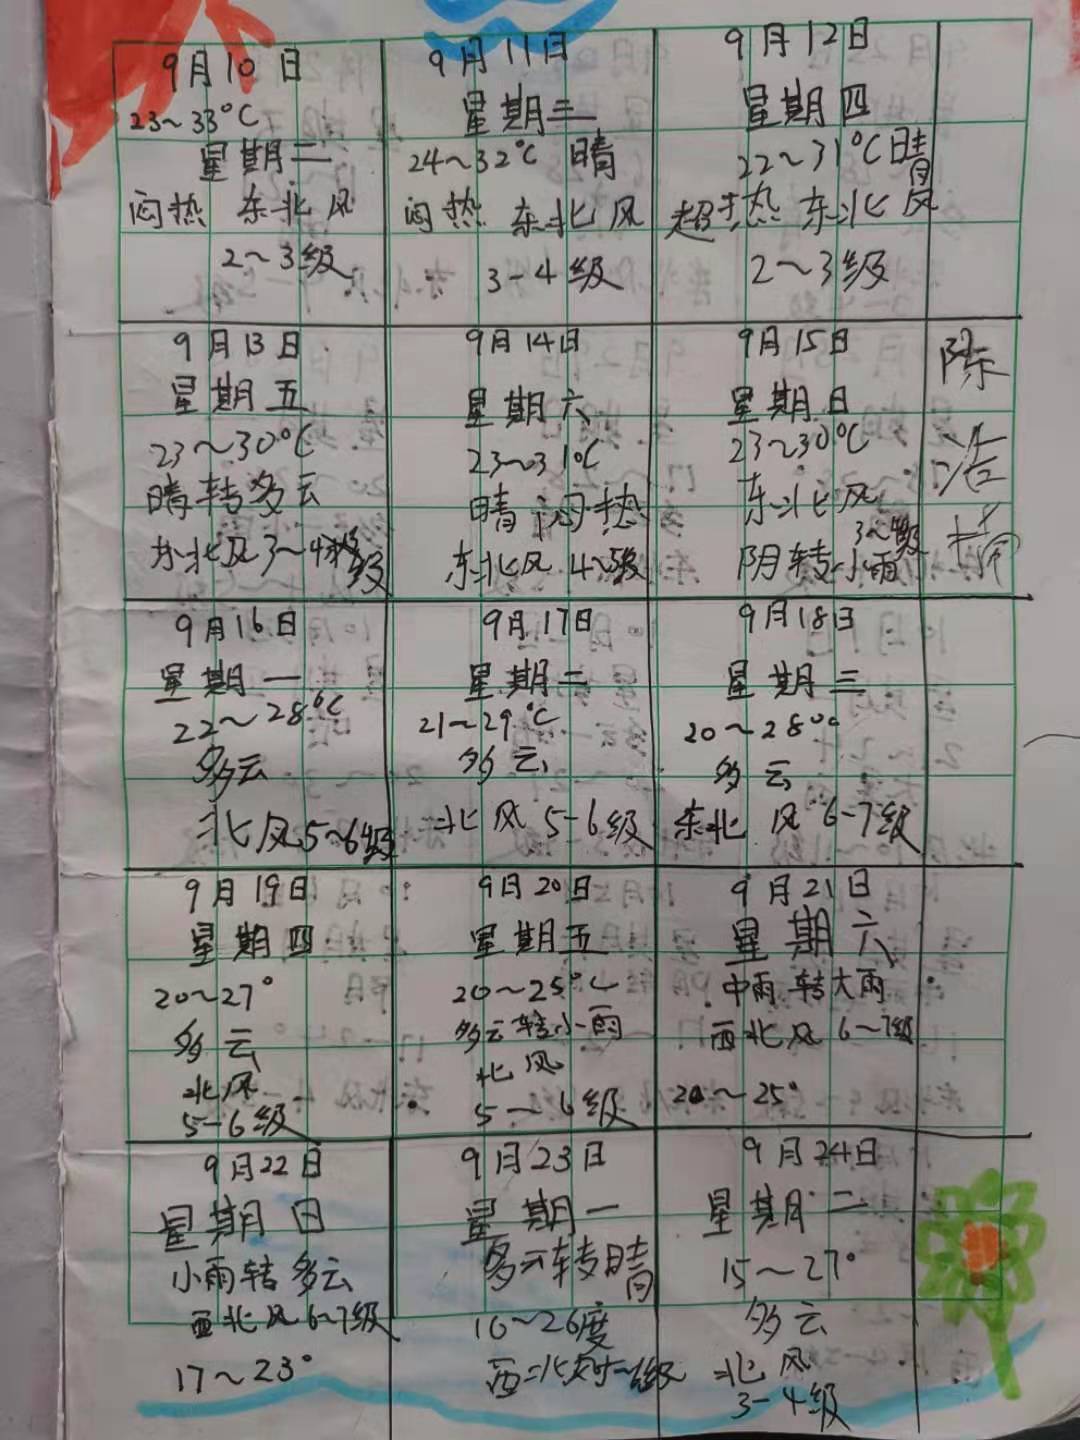 9月10日
23~33°C
星期二
闷热 东北风
2~3级
9月11日
星期三
24~32°C 晴
闷热 东北风
3-4级
9月12日
星期四
22~31°C 晴
超热 东北风
2~3级
9月13日
星期五
23~30°C
晴转多云
东北风3~4级
9月14日
星期六
23~31°C
晴 闷热
东北风 4~5级
9月15日
星期日
23~30°C
东北风
3~级
阴转小雨
陈
浩
9月16日
星期一
22~28°C
多云
北风5~6级
9月17日
星期二
21~29°C
多云
北风 5-6级
9月18日
星期三
20~28°C
多云
东北风 6-7级
9月19日
星期四
20~27°
多云
北风
5-6级
9月20日
星期五
20~25°C
多云转小雨
北风
5~6级
9月21日
星期六
中雨转大雨
西北风 6~7级
20~25°
9月22日
星期日
小雨转多云
西北风6~7级
17~23°
9月23日
星期一
多云转晴
16~26度
西北
9月24日
星期二
15~27°
多云
北风
3-4级